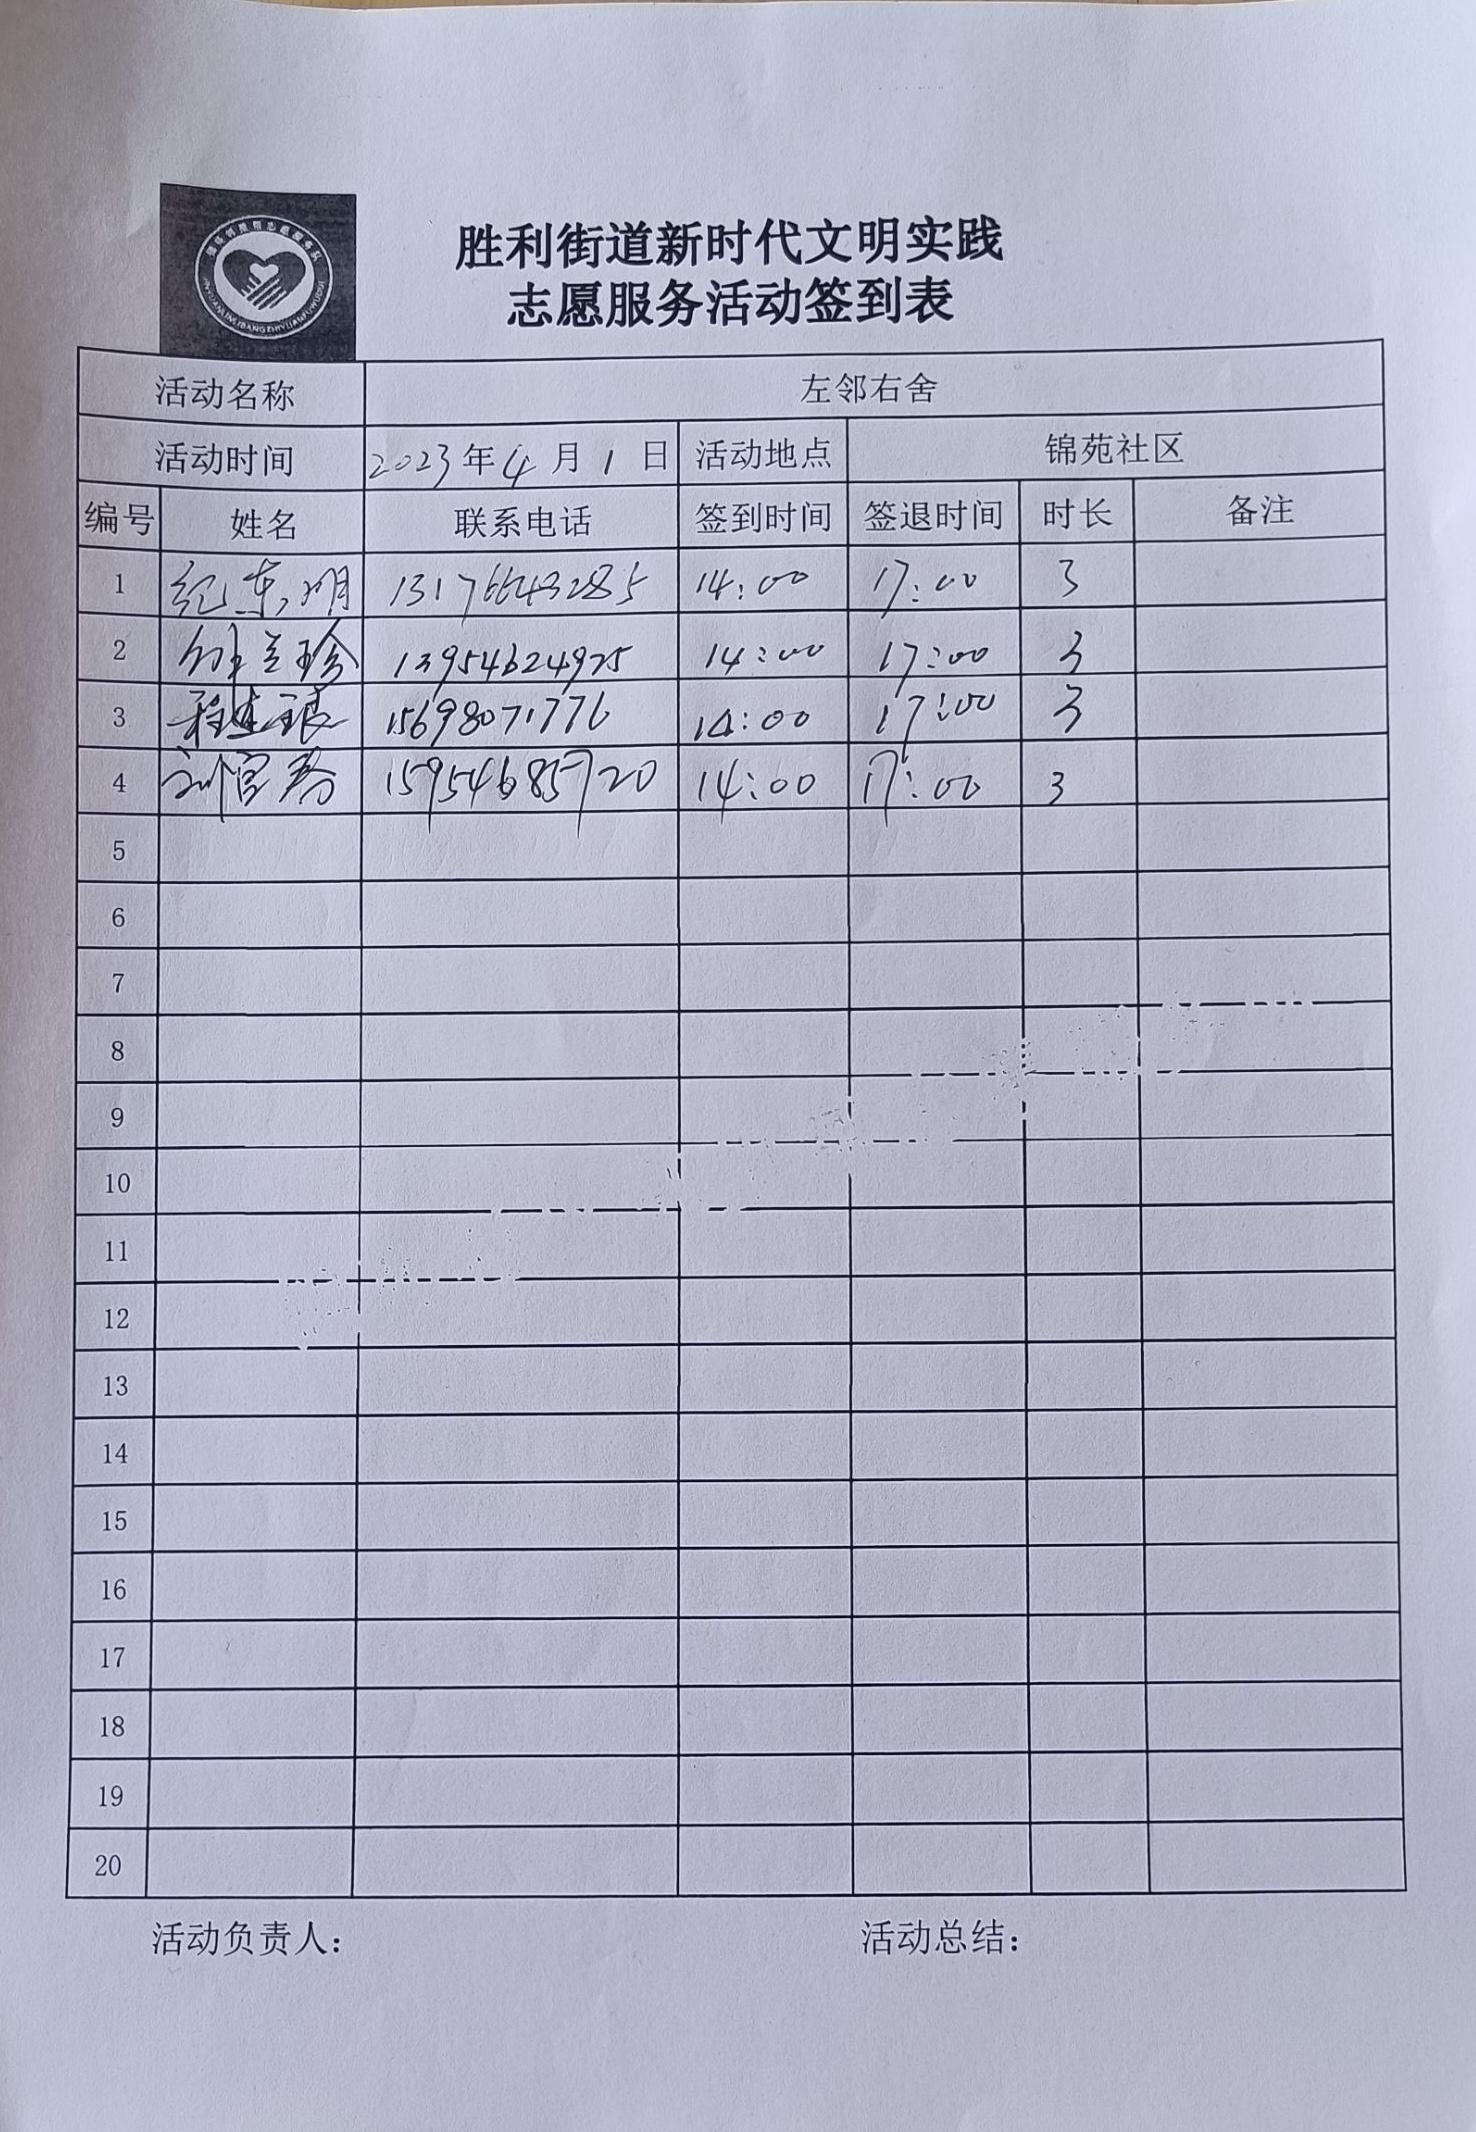 胜利街道新时代文明实践
志愿服务活动签到表
活动名称 左邻右舍
活动时间 2023年4月1日 活动地点 锦苑社区
编号 姓名 联系电话 签到时间 签退时间 时长 备注
1 纪东明 13176643285 14:00 17:00 3
2 兰珍 13954624925 14:00 17:00 3
3 程 15698071776 14:00 17:00 3
4 刘官 15954685720 14:00 17:00 3
5
6
7
8
9
10
11
12
13
14
15
16
17
18
19
20
活动负责人： 活动总结：